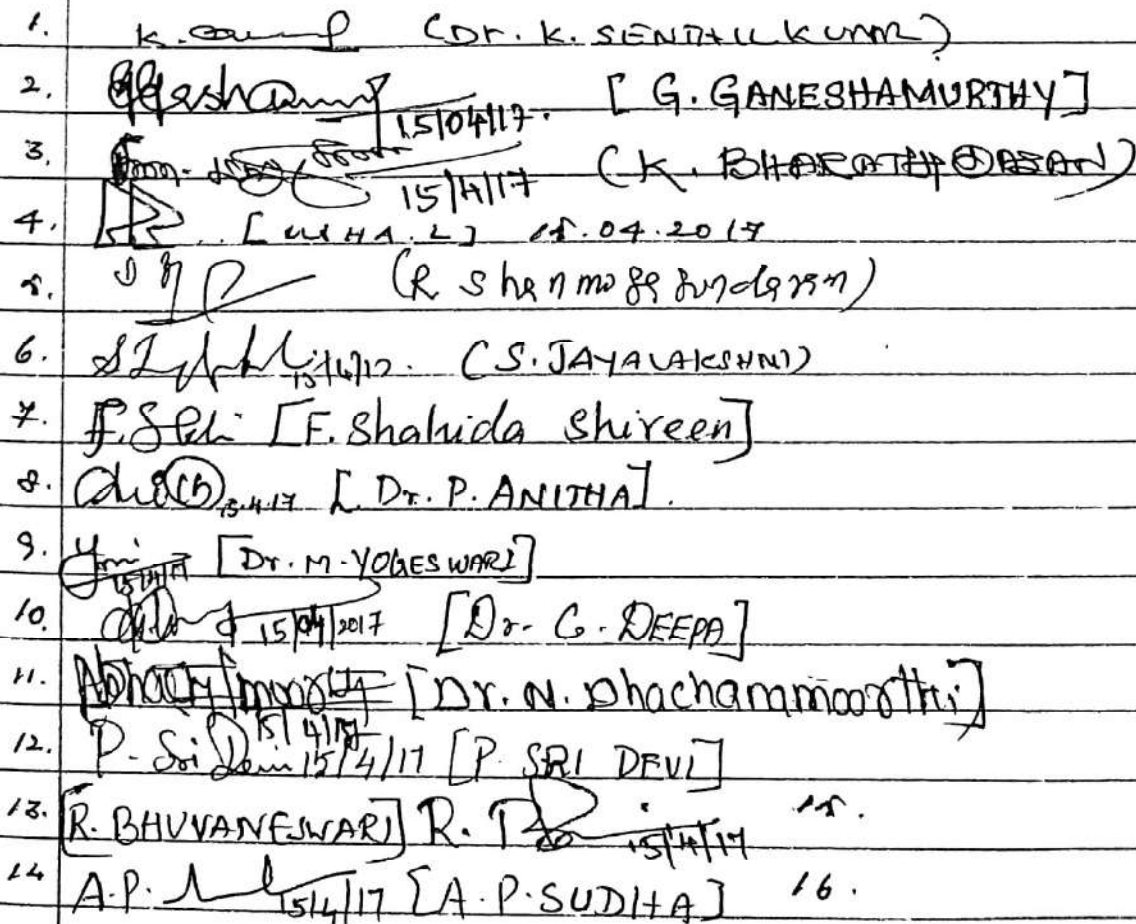 1. K. (Dr. K. SENTHIL KUMAR)
2. 15/04/17. [G. GANESHAMURTHY]
3. 15/4/17 (K. BHARATHIDASAN)
4. [USHA.L] 15.04.2017
5. (R Shanmuga Sundaram)
6. 15/4/17. (S. JAYALAKSHMI)
7. F. [F. Shahida Shireen]
8. 15.4.17 [Dr. P. ANITHA].
9. 15/4/17 [Dr. M. YOGESWARI]
10. 15/04/2017 [Dr. G. DEEPA]
11. [Dr. N. Dhachanamoorthi]
15/4/17
12. P. Sri Devi 15/4/17 [P. SRI DEVI]
13. [R. BHUVANESWARI] R. 15/4/17 15.
14 A.P. 15/4/17 [A.P. SUDHA] 16.